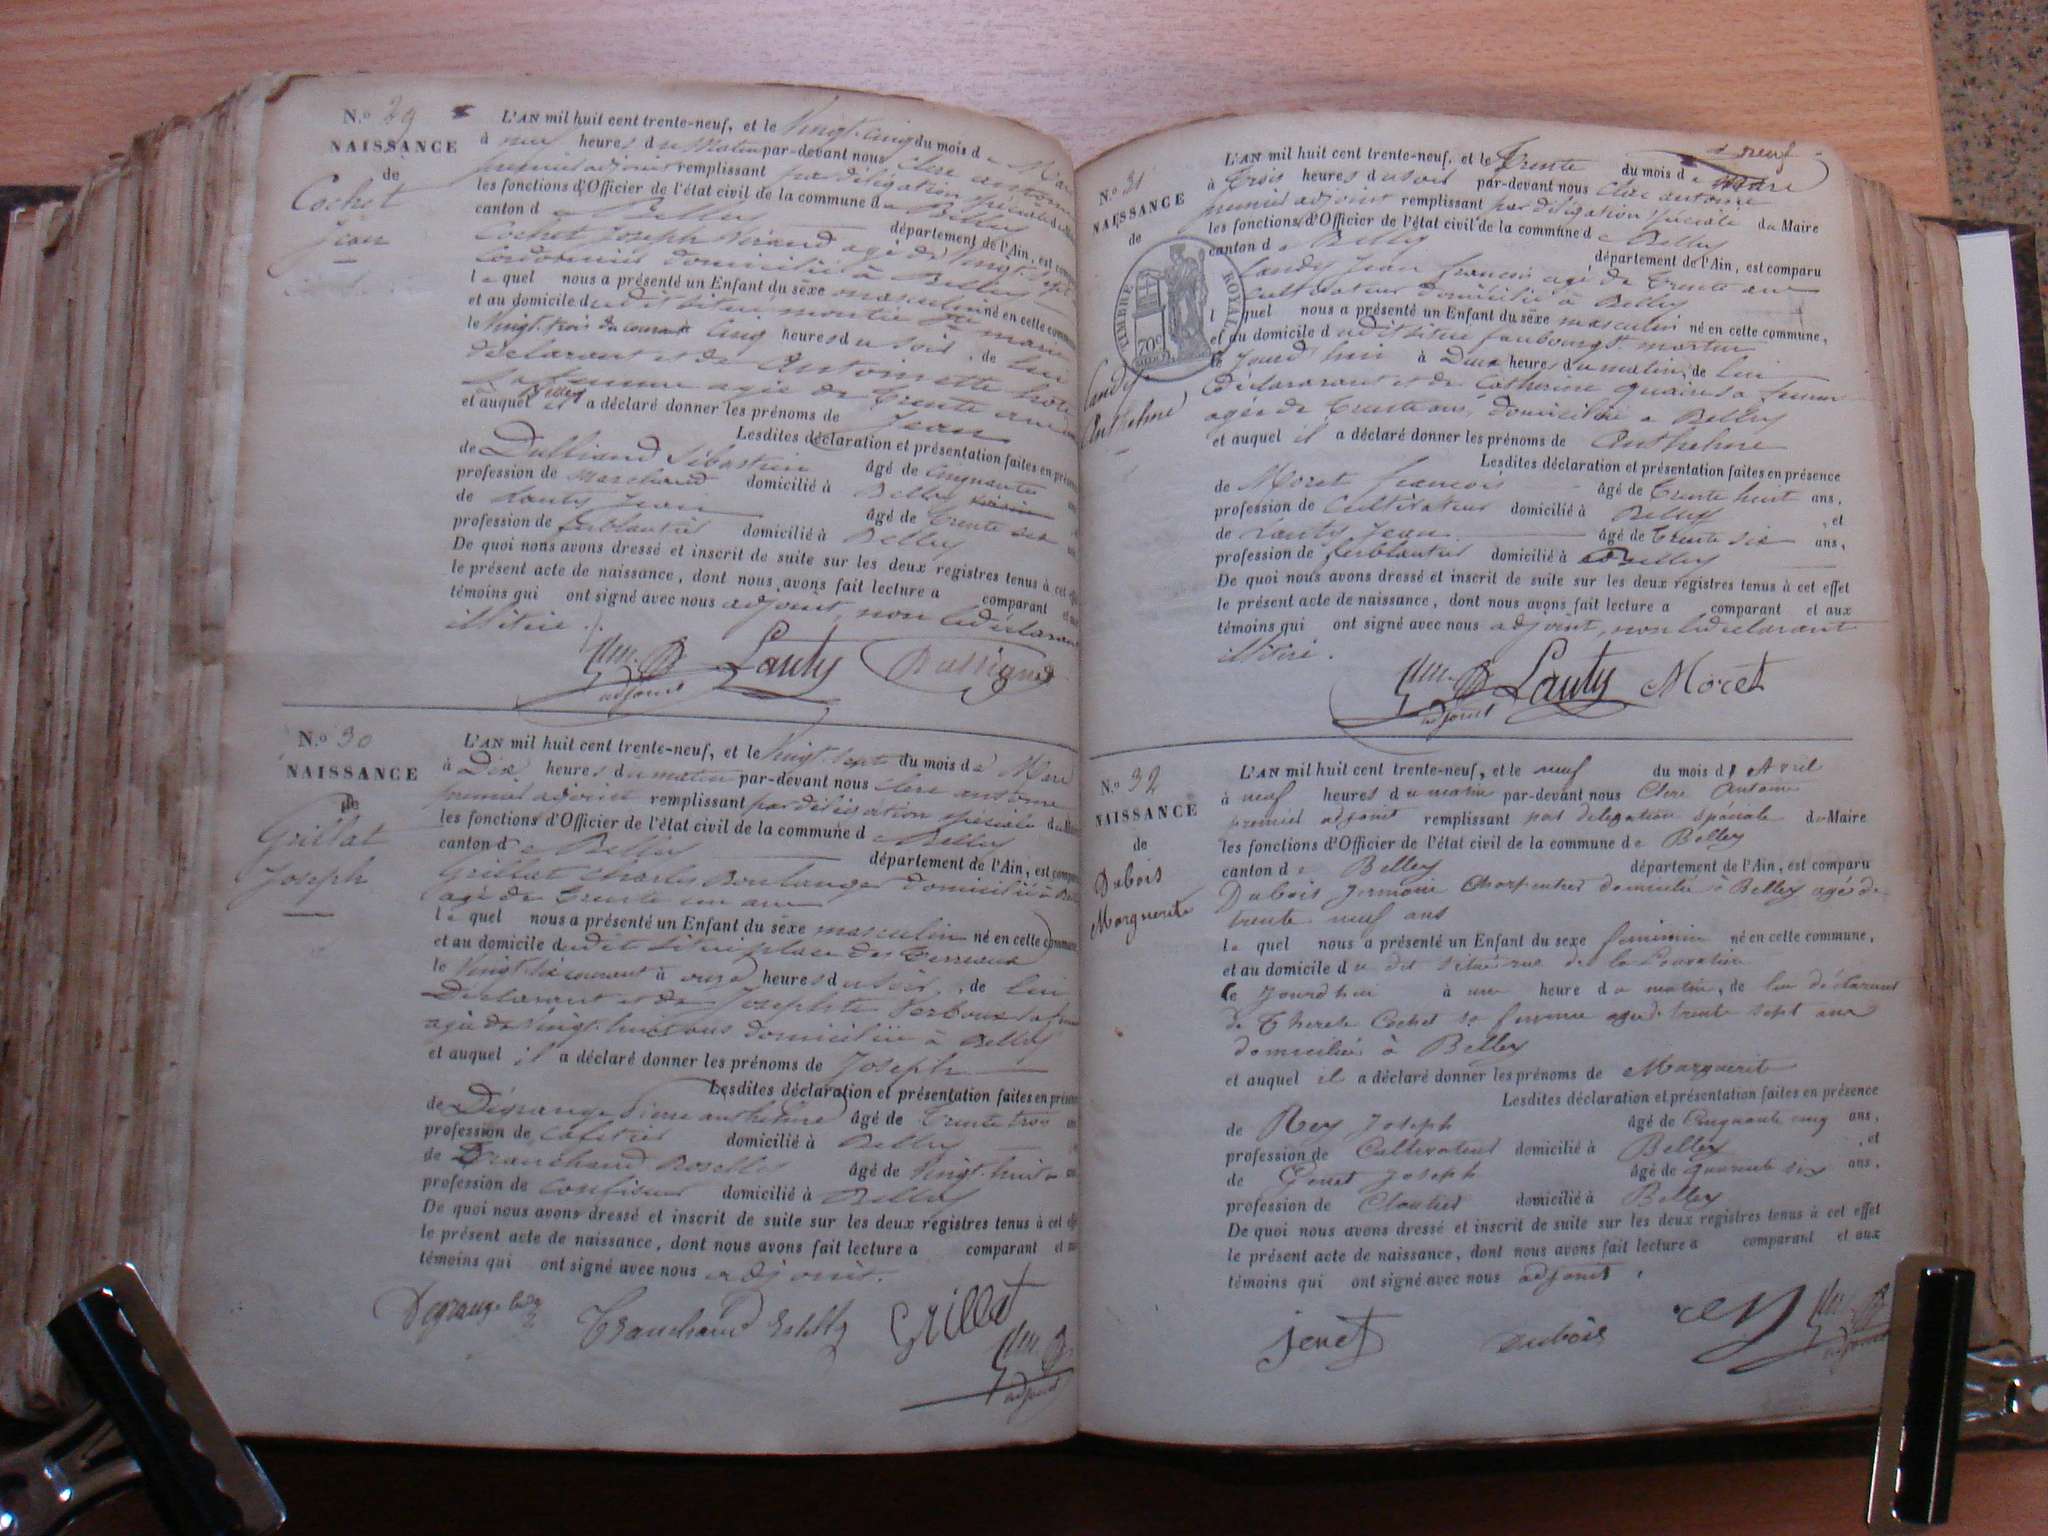 N.o 29
NAISSANCE
de
Cochet
Jean
L'AN mil huit cent trente-neuf, et le Vingt-cinq du mois de Mars
à neuf heures du Matin par-devant nous Clerc antoine
premier adjoint remplissant par délégation spéciale du Maire
les fonctions d'Officier de l'état civil de la commune de Belley
canton de Belley département de l'Ain, est comparu
Cochet Joseph agé de Vingt-sept
Cordonnier domicilié à Belley
le quel nous a présenté un Enfant du sexe masculin né en cette commune
et au domicile dudit situé montée
le Vingt-trois du courant à Cinq heures du soir, de lui
déclarant et de Antoinette
sa femme agée de Trente ans
Belley
et auquel il a déclaré donner les prénoms de Jean
Lesdites déclaration et présentation faites en présence
de Sébastien âgé de Cinquante
profession de Marchand domicilié à Belley
de Lauty Jean âgé de Trente six
profession de ferblantier domicilié à Belley
De quoi nous avons dressé et inscrit de suite sur les deux registres tenus à cet effet
le présent acte de naissance, dont nous avons fait lecture a comparant et aux
témoins qui ont signé avec nous adjoint, non le déclarant
illitiré.
Lauty
adjoint
N.o 30
NAISSANCE
de
Grillat
Joseph
L'AN mil huit cent trente-neuf, et le Vingt-sept du mois de Mars
à Dix heures du matin par-devant nous Clerc antoine
premier adjoint remplissant par délégation spéciale du Maire
les fonctions d'Officier de l'état civil de la commune de Belley
canton de Belley département de l'Ain, est comparu
Grillat Charles Boulanger domicilié à Belley
agé de Trente un ans
le quel nous a présenté un Enfant du sexe masculin né en cette commune
et au domicile dudit situé place des Terreaux
le Vingt six courant à onze heures du soir, de lui
Déclarant et de Josephte sa femme
agée de Vingt-huit ans domiciliée à Belley
et auquel il a déclaré donner les prénoms de Joseph
Lesdites déclaration et présentation faites en présence
de Dégrange Pierre anthelme âgé de Trente trois ans
profession de Cafetier domicilié à Belley
de Tranchand âgé de Vingt-huit
profession de Confiseur domicilié à Belley
De quoi nous avons dressé et inscrit de suite sur les deux registres tenus à cet effet
le présent acte de naissance, dont nous avons fait lecture a comparant et aux
témoins qui ont signé avec nous adjoint.
Degrange Tranchand Grillat
adjoint
N.o 31
NAISSANCE
de
TIMBRE ROYAL
70c
Candy
Anthelme
L'AN mil huit cent trente-neuf, et le Trente du mois de Mars
à Trois heures du soir par-devant nous Clerc antoine
premier adjoint remplissant par délégation spéciale du Maire
les fonctions d'Officier de l'état civil de la commune de Belley
canton de Belley département de l'Ain, est comparu
Candy Jean françois agé de Trente ans
Cultivateur domicilié à Belley
l quel nous a présenté un Enfant du sexe masculin né en cette commune,
et au domicile dudit situé faubourg St. martin
le jourd'hui à Deux heures du matin, de lui
déclararant et de Catherine sa femme
agée de Trente ans, domiciliée à Belley
et auquel il a déclaré donner les prénoms de Anthelme
Lesdites déclaration et présentation faites en présence
de Moret françois âgé de Trente huit ans,
profession de Cultivateur domicilié à Belley, et
de Lauty Jean âgé de Trente six ans,
profession de ferblantier domicilié à Belley
De quoi nous avons dressé et inscrit de suite sur les deux registres tenus à cet effet
le présent acte de naissance, dont nous avons fait lecture a comparant et aux
témoins qui ont signé avec nous adjoint, non le déclarant
illitiré.
Lauty Moret
adjoint
N.o 32
NAISSANCE
de
Dubois
Marguerite
L'AN mil huit cent trente-neuf, et le neuf du mois d'Avril
à neuf heures du matin par-devant nous Clerc Antoine
premier adjoint remplissant par délégation spéciale du Maire
les fonctions d'Officier de l'état civil de la commune de Belley
canton de Belley département de l'Ain, est comparu
Dubois Charpentier domicilié à Belley agé de
trente neuf ans
le quel nous a présenté un Enfant du sexe féminin né en cette commune,
et au domicile du dit situé rue de la
le jourd'hui à une heure du matin, de lui déclarant
de Therese Cochet sa femme agée de trente sept ans
domiciliée à Belley
et auquel il a déclaré donner les prénoms de Marguerite
Lesdites déclaration et présentation faites en présence
de Rey Joseph âgé de Cinquante cinq ans,
profession de Cultivateur domicilié à Belley, et
de Genet Joseph âgé de quarente six ans,
profession de Cloutier domicilié à Belley
De quoi nous avons dressé et inscrit de suite sur les deux registres tenus à cet effet
le présent acte de naissance, dont nous avons fait lecture a comparant et aux
témoins qui ont signé avec nous adjoint.
jenet dubois
adjoint